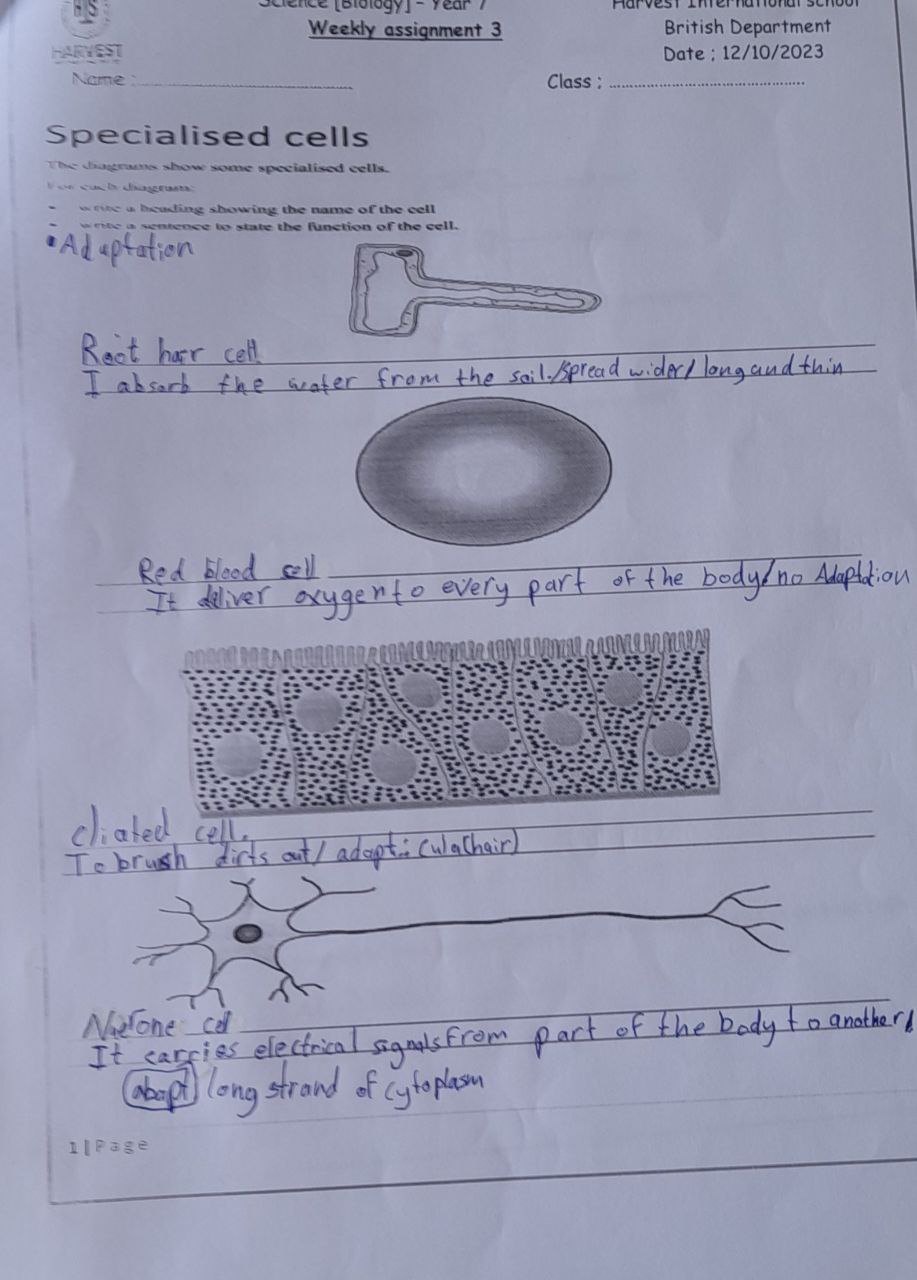 Science [Biology] - Year 7
Harvest International School
Weekly assignment 3
British Department
HARVEST
Date : 12/10/2023
Name :
Class :
Specialised cells
The diagrams show some specialised cells.
For each diagram:
- write a heading showing the name of the cell
- write a sentence to state the function of the cell.
•Adaptation
Root harr cell
I absorb the water from the soil./spread wider/long and thin
Red blood cell
It deliver oxygen to every part of the body/no Adaptation
cliated cell.
To brush dirts out/ adapt: (
It carries electrical signals from part of the body to another/
abapt long strand of cytoplasm
1|Page